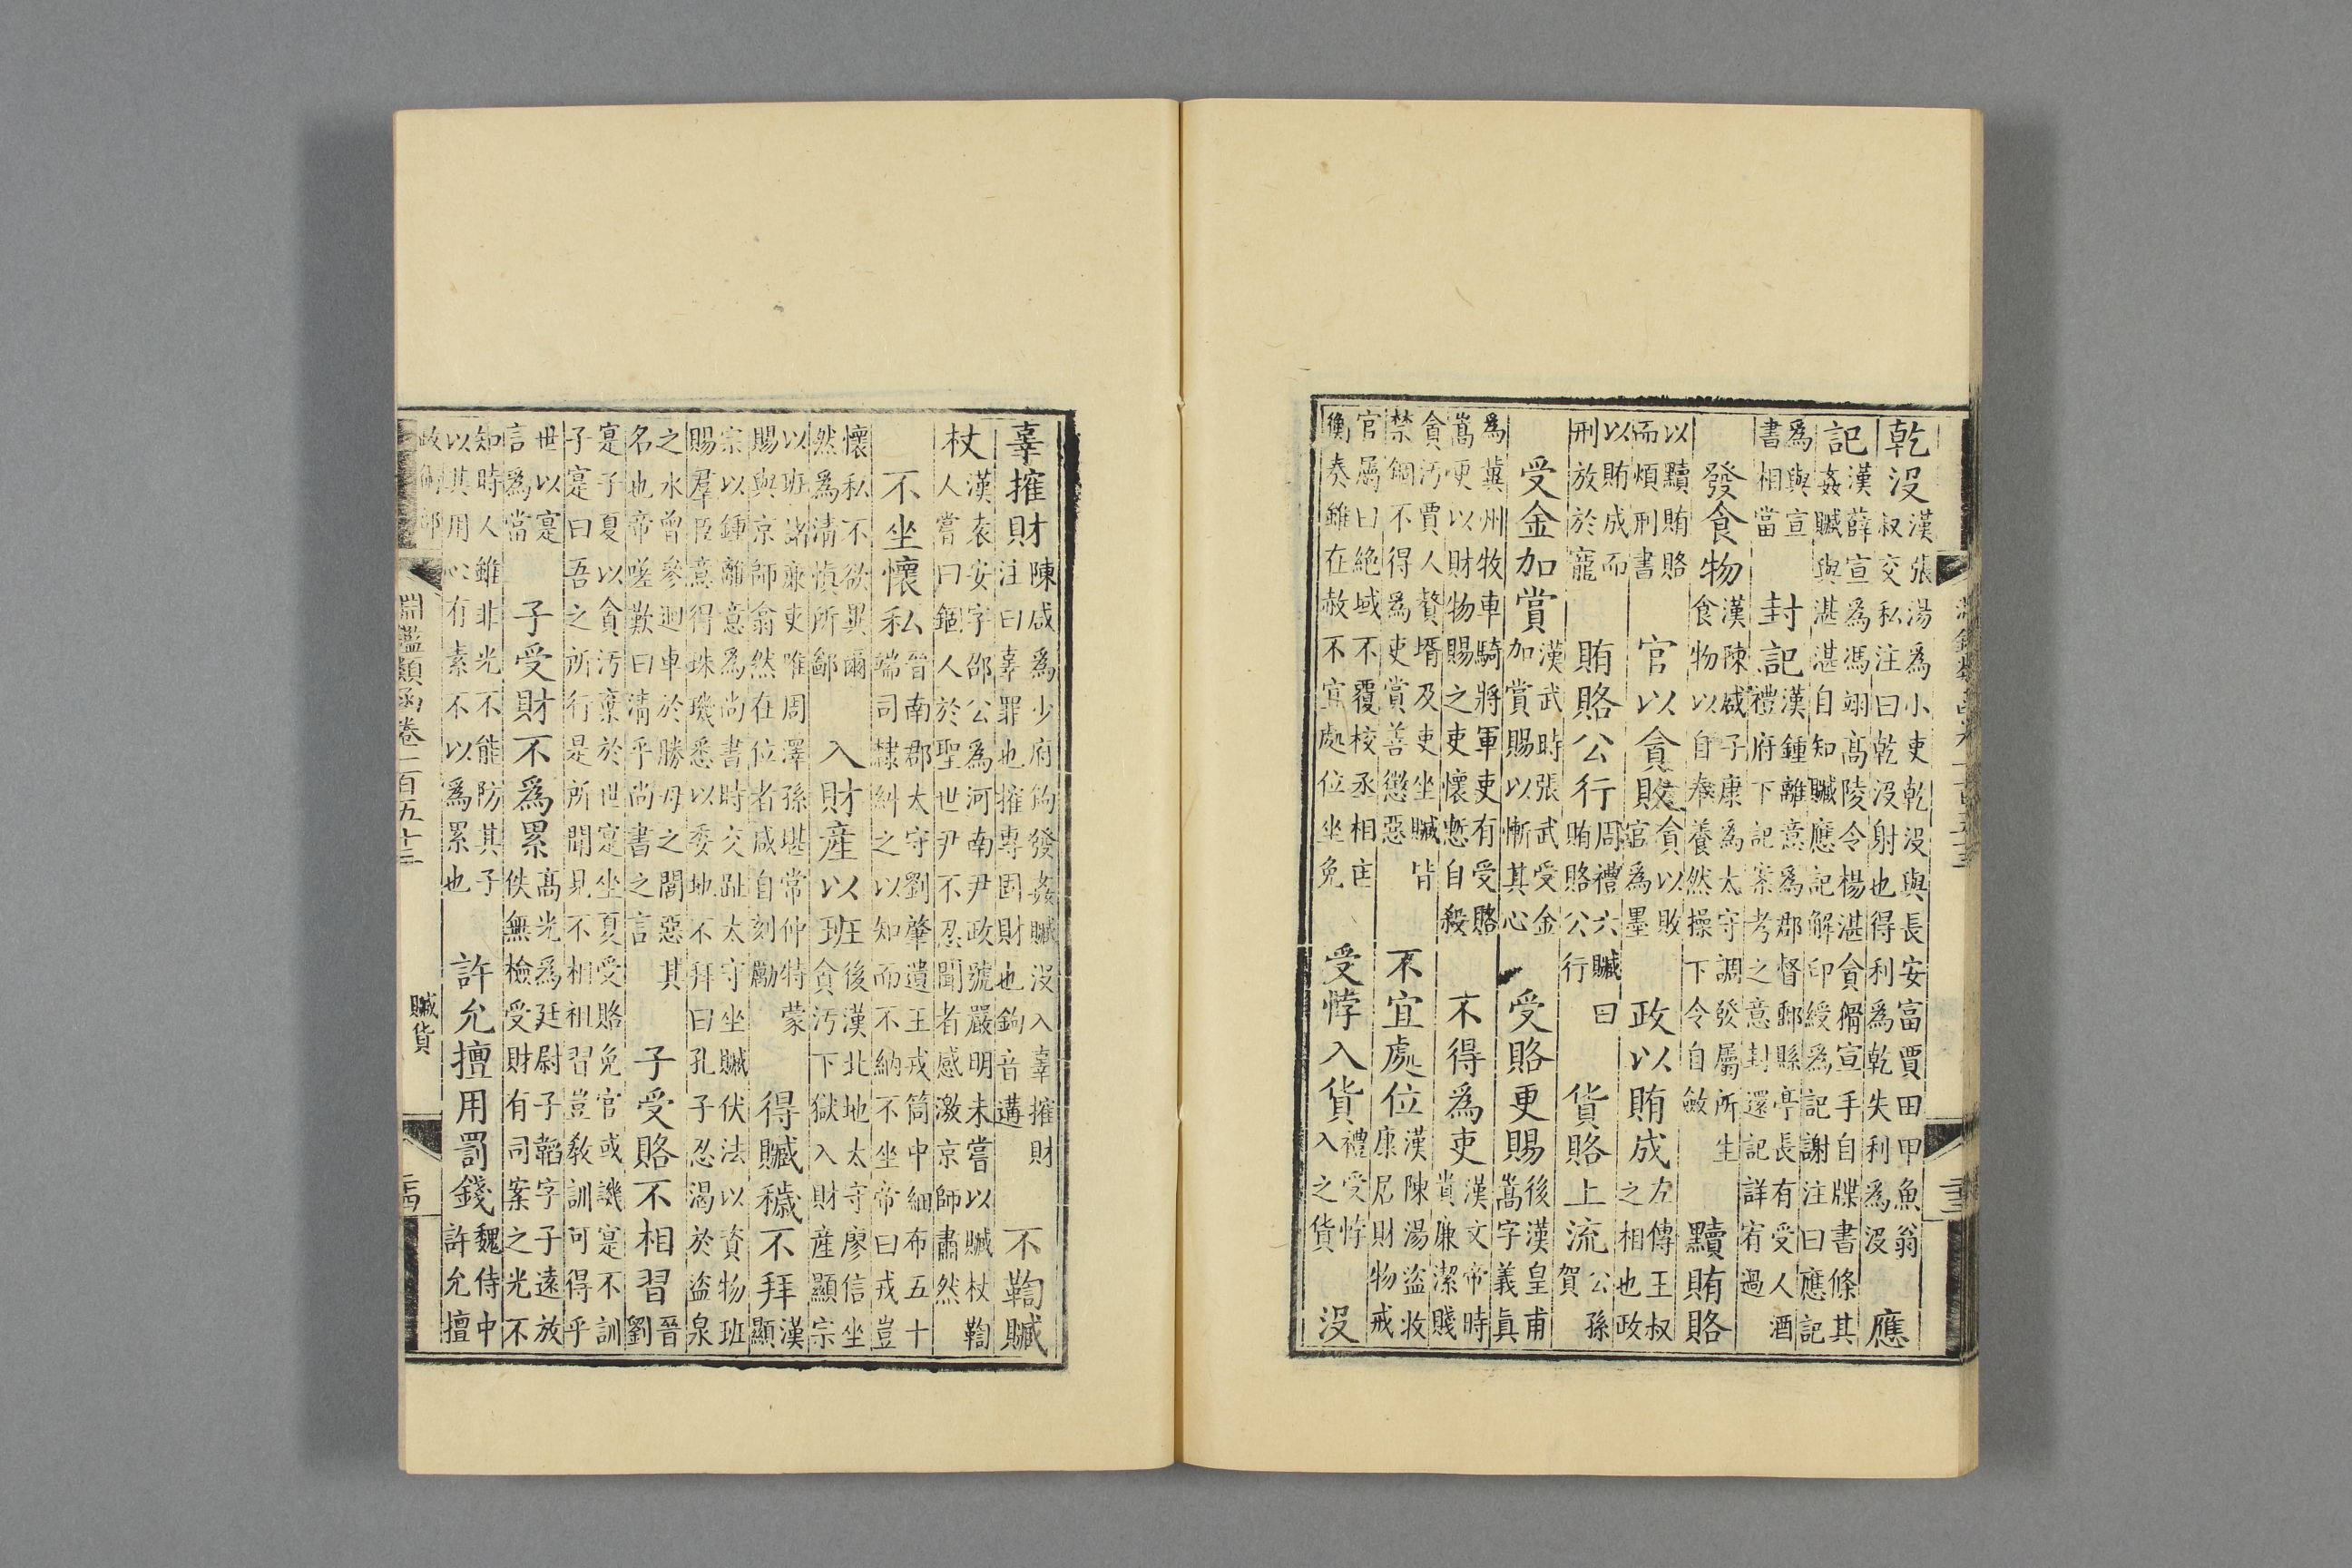 乾没漢張湯為小吏乾没與長安富賈田甲魚翁
叔交私注曰乾没射也得利為乾失利為没應
記漢薛宣為馮翊髙陵令楊湛貪猾宣手自牒書條其
姦贓與湛湛自知贓應記解印綬為記謝注曰應記
為與宣
書相當封記漢鍾離意為郡督郵縣亭長有受人酒
禮府下記案考之意封還記詳宥過
發食物漢陳咸子康為太守調發屬所生
食物以自奉養然操下令自斂黷賄賂
以黷賄賂
而煩刑書官以貪敗貪以敗
官為墨政以賄成左傳王叔
之相也政
以賄成而
刑放於寵賄賂公行周禮六贓曰
賄賂公公行貨賂上流公孫
賀
受金加賞漢武時張武受金
加賞賜以慚其心受賂更賜後漢皇甫
嵩字義真
為冀州牧車騎將軍吏有受賂
嵩更以財物賜之吏懷慙自殺不得為吏漢文帝時
貴廉潔賤
貪汚賈人贅壻及吏坐贓皆
禁錮不得為吏賞善懲惡不宜處位漢陳湯盜收
康居財物戒
官屬曰絶域不覆校丞相
衡奏雖在赦不宜處位坐免受悖入貨禮受悖
入之貨没
辜㩁財陳咸為少府鉤發姦贓没入辜㩁財
注曰辜罪也㩁專固財也鉤音遘不鞫贓
杖漢袁安字邵公為河南尹政號嚴明未嘗以贓杖鞫
人嘗曰錮人於聖世尹不忍聞者感激京師肅然
不坐懷私晉南郡太守劉肇遺王戎筒中細布五十
端司隸糾之以知而不納不坐帝曰戎豈
懷私不欲異爾
然為清慎所鄙入財産以班後漢北地太守廖信坐
貪汚下獄入財産顯宗
以班諸廉吏唯周澤孫堪常仲特蒙
賜與京師翕然在位者咸自刻勵得贓穢不拜漢顯
宗以鍾離意為尚書時交趾太守坐贓伏法以資物班
賜羣臣意得珠璣悉以委地不拜曰孔子忍渴於盜泉
之水曾參廻車於勝母之閭惡其
名也帝嗟歎曰清乎尚書之言子受賂不相習晉劉
寔子夏以貪汚棄於世寔坐夏受賂免官或譏寔不訓
子寔曰吾之所行是所聞見不相祖習豈敎訓可得乎
世以寔
言為當子受財不為累髙光為廷尉子韜字子遠放
佚無檢受財有司案之光不
知時人雖非光不能防其子
以其用心有素不以為累也許允擅用罰錢魏侍中
許允擅
淵鑑類函卷一百五十三
贓貨